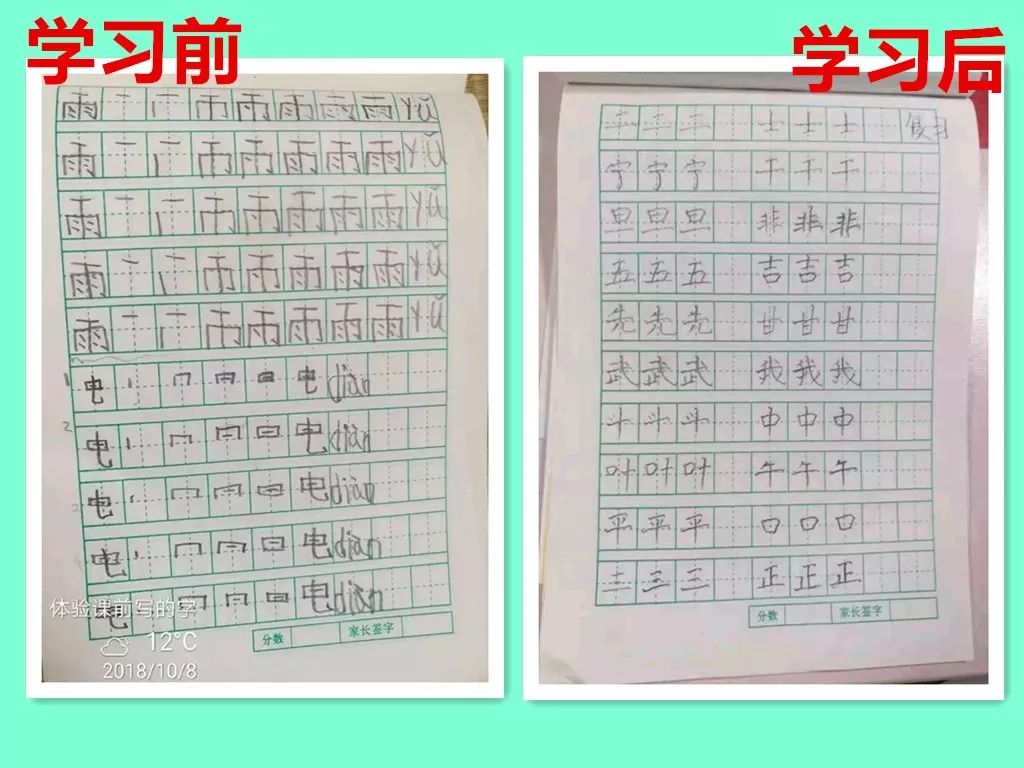 学习前
雨 一 丨 冂 雨 雨 雨 雨 yǔ
雨 一 丨 冂 雨 雨 雨 雨 yǔ
雨 一 丨 冂 雨 雨 雨 雨 yǔ
雨 一 丨 冂 雨 雨 雨 雨 yǔ
雨 一 丨 冂 雨 雨 雨 雨 yǔ
1 电 丨 冂 日 电 diàn
2 电 丨 冂 日 电 diàn
电 丨 冂 日 电 diàn
电 丨 冂 日 电 diàn
电 冂 日 电 diàn
分数 家长签字
体验课前写的字
12°C
2018/10/8
学习后
士 士 士
宁 宁 宁 干 干 干
卑 卑 卑 非 非 非
五 五 五 吉 吉 吉
先 先 先 甘 甘 甘
武 武 武 我 我 我
斗 斗 斗 中 中 中
叶 叶 叶 午 午 午
平 平 平 口 口 口
三 三 三 正 正 正
分数 家长签字